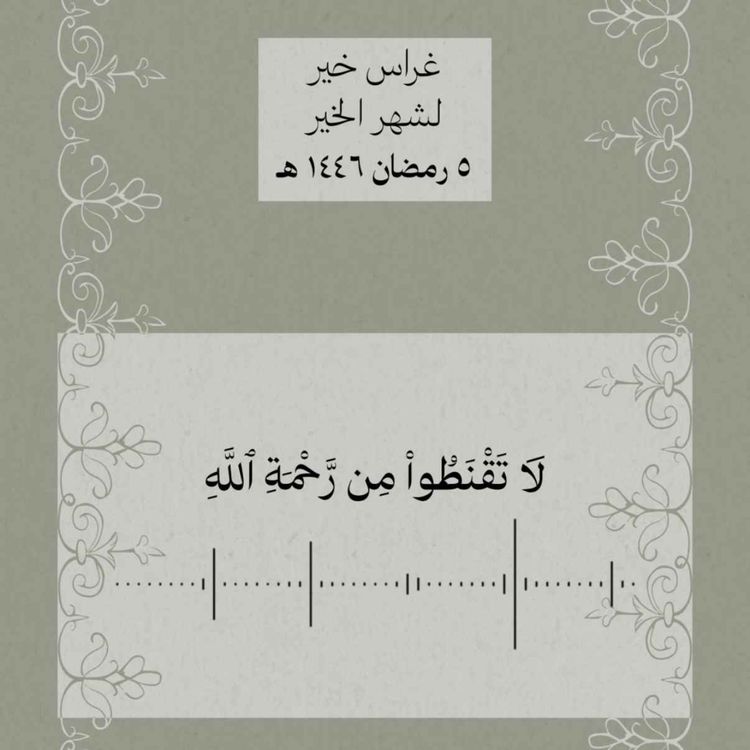 غراس خير
لشهر الخير
٥ رمضان ١٤٤٦ هـ
لَا تَقْنَطُوا۟ مِن رَّحْمَةِ ٱللَّهِ